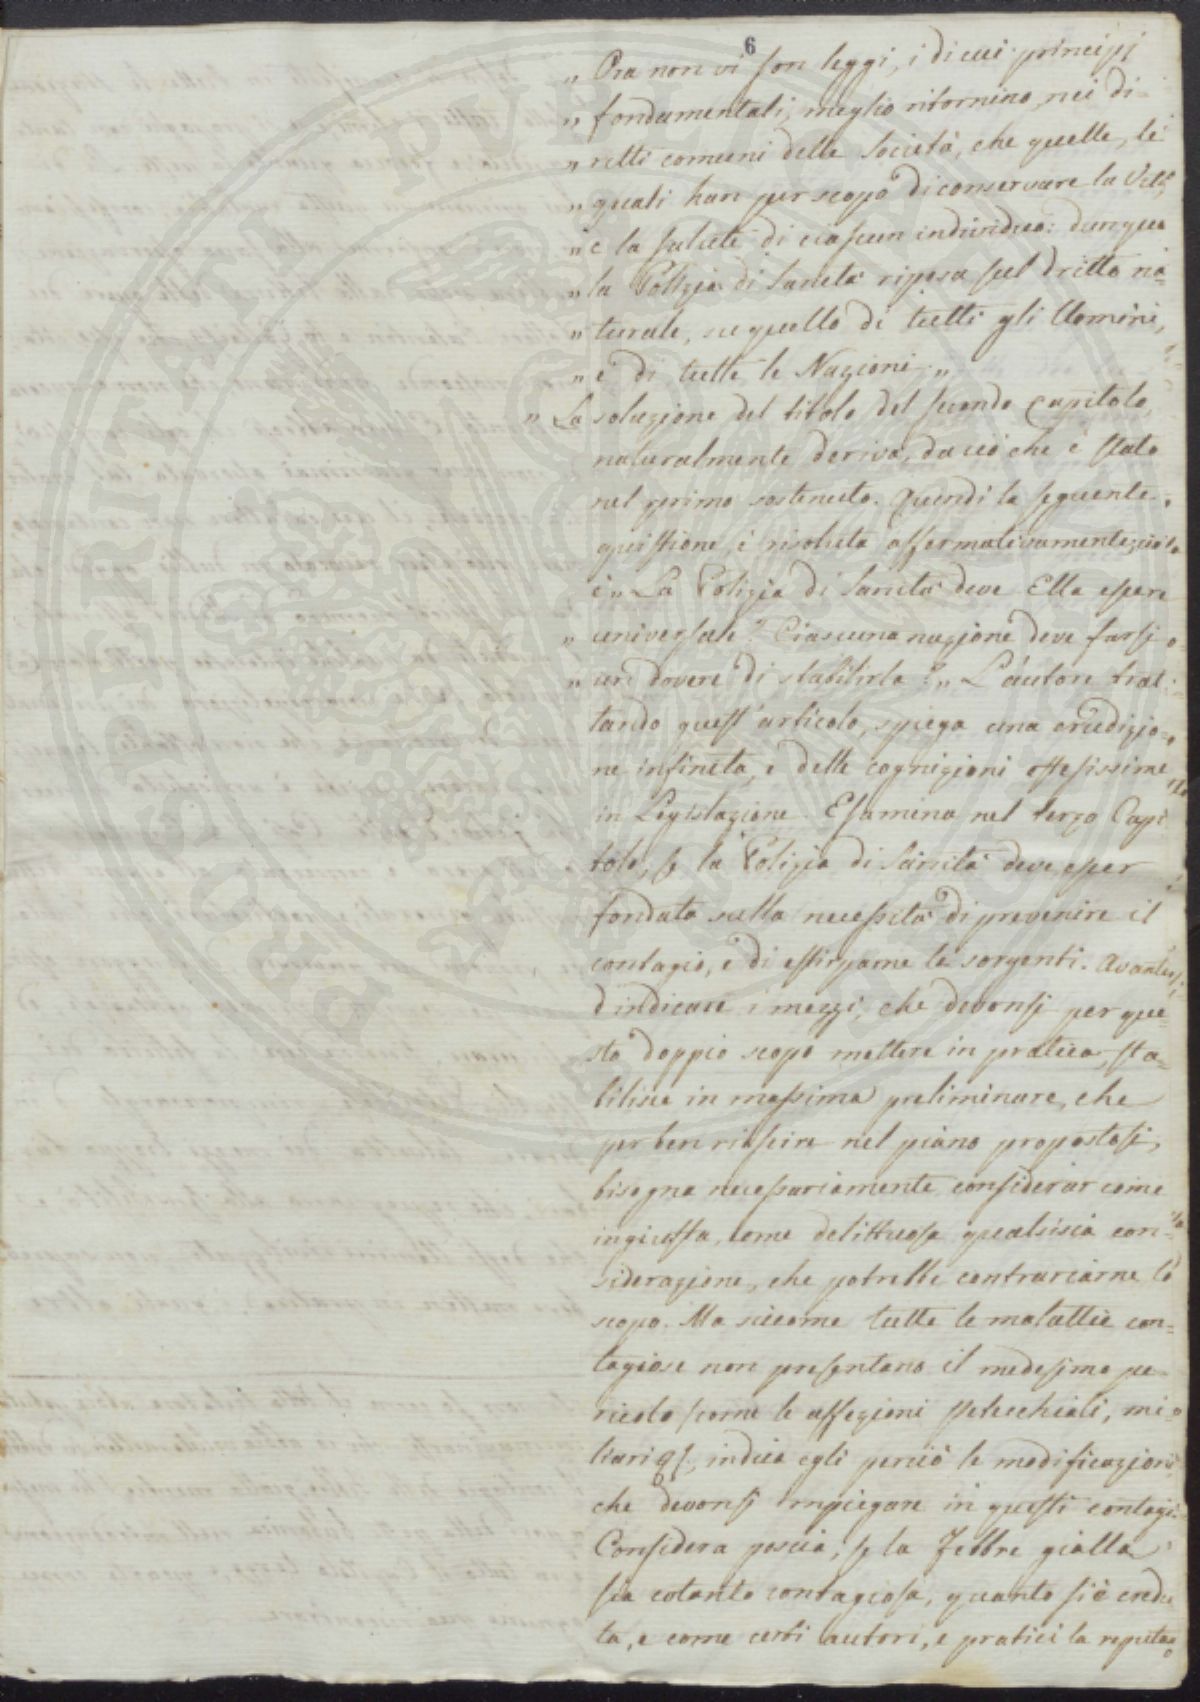 6
„ Ora non vi son leggi, i di cui principj
„ fondamentali, meglio ritornino nei di-
„ ritti comuni delle società, che quelle, le
„ quali han per scopo di conservare la vita,
„ e la salute di ciascun individuo: dunque
„ la Polizia di Sanità riposa sul dritto na-
„ turale, su quello di tutti gli Uomini,
„ e di tutte le Nazioni „
„ La soluzione del titolo del secondo Capitolo,
naturalmente deriva, da ciò che è stato
nel primo sostenuto. Quindi la seguente
quistione, è risoluta affermativamente, cioè
è „ La Polizia di Sanità deve Ella essere
„ universale? Ciascuna nazione deve farsi
„ un dovere di stabilirla? „ L'autore trat-
tando quest'articolo, spiega una erudizio-
ne infinita, e delle cognizioni estesissime
in Legislazione. Esamina nel terzo Capi
tolo, se la Polizia di Sanità deve esser
fondata sulla necessità di prevenire il
contagio, e di estirparne le sorgenti. Avanti
d'indicare i mezzi, che devonsi per que-
sto doppio scopo mettere in pratica, sta-
bilisce in massima preliminare, che
per ben riuscire nel piano propostosi,
bisogna necessariamente considerar come
ingiusta, come delittuosa qualsisia con-
siderazione, che potrebbe contrariarne lo
scopo. Ma siccome tutte le malattie con-
tagiose non presentano il medesimo pe-
ricolo, come le affezioni petecchiali, mi-
liari &c., indica egli perciò le modificazioni,
che devonsi impiegare in questi contagi.
Considera poscia, se la Febbre gialla
sia cotanto contagiosa, quanto si è credu
ta, e come certi autori, e pratici la reputano